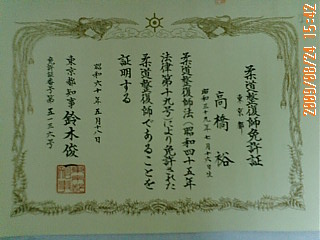 柔道整復師免許証
東京都
高橋裕
昭和三十九年七月十六日生
柔道整復師法(昭和四十五年
法律第十九号)により免許された
柔道整復師であることを
証明する
昭和六十年五月十八日
東京都知事 鈴木俊一
免許証番号第五一三六号
2009/08/24 15:42